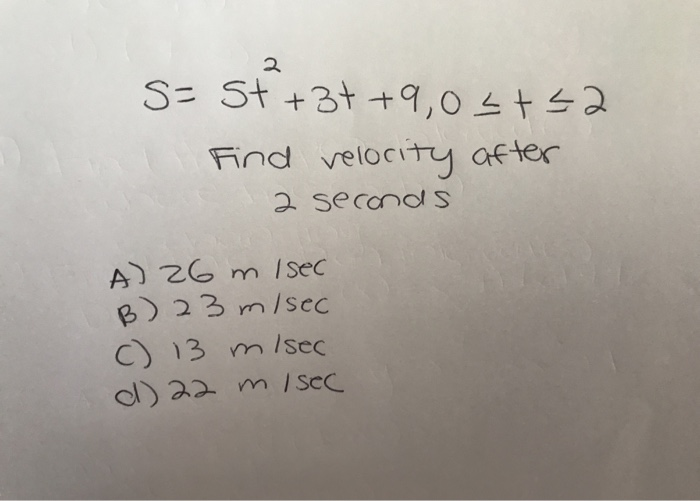 S= 5t² +3t +9, 0 ≤ t ≤ 2
Find velocity after
2 seconds
A) 26 m/sec
B) 23 m/sec
C) 13 m/sec
d) 22 m/sec